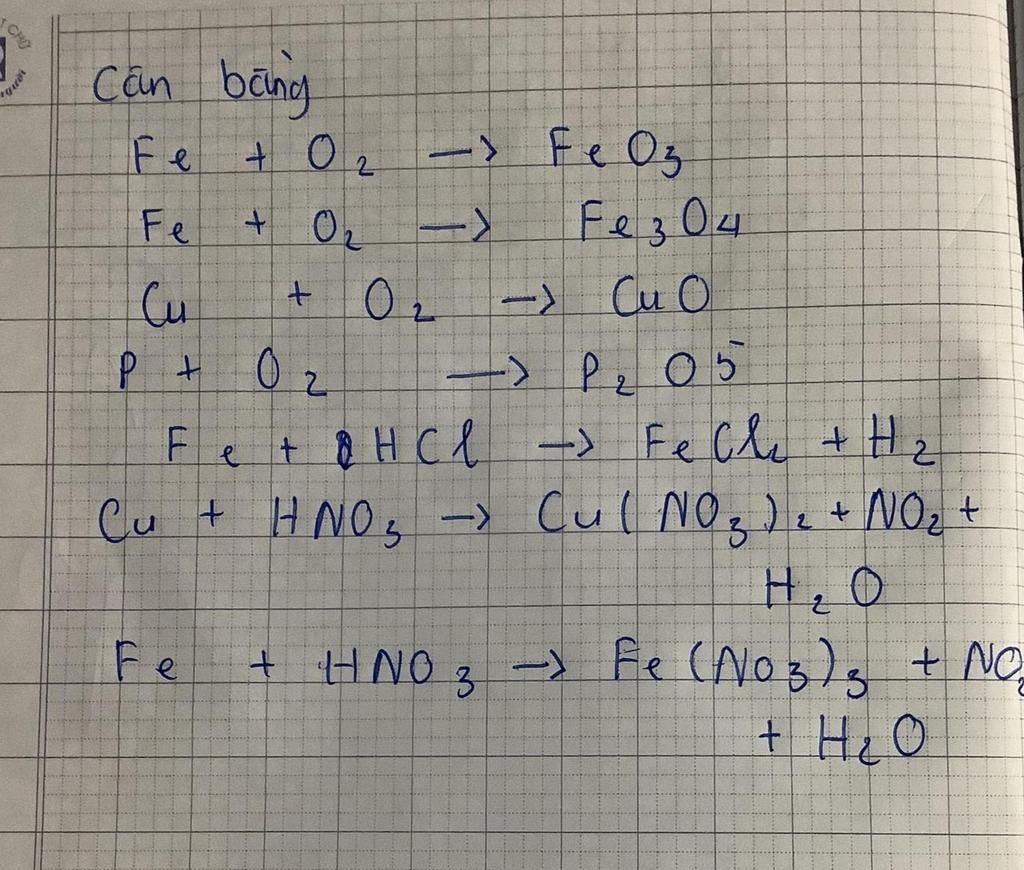 Cân bằng
Fe + O2 → FeO3
Fe + O2 → Fe3O4
Cu + O2 → CuO
P + O2 → P2O5
Fe + HCl → FeCl2 + H2
Cu + HNO3 → Cu(NO3)2 + NO2 +
H2O
Fe + HNO3 → Fe(NO3)3 + NO2
+ H2O